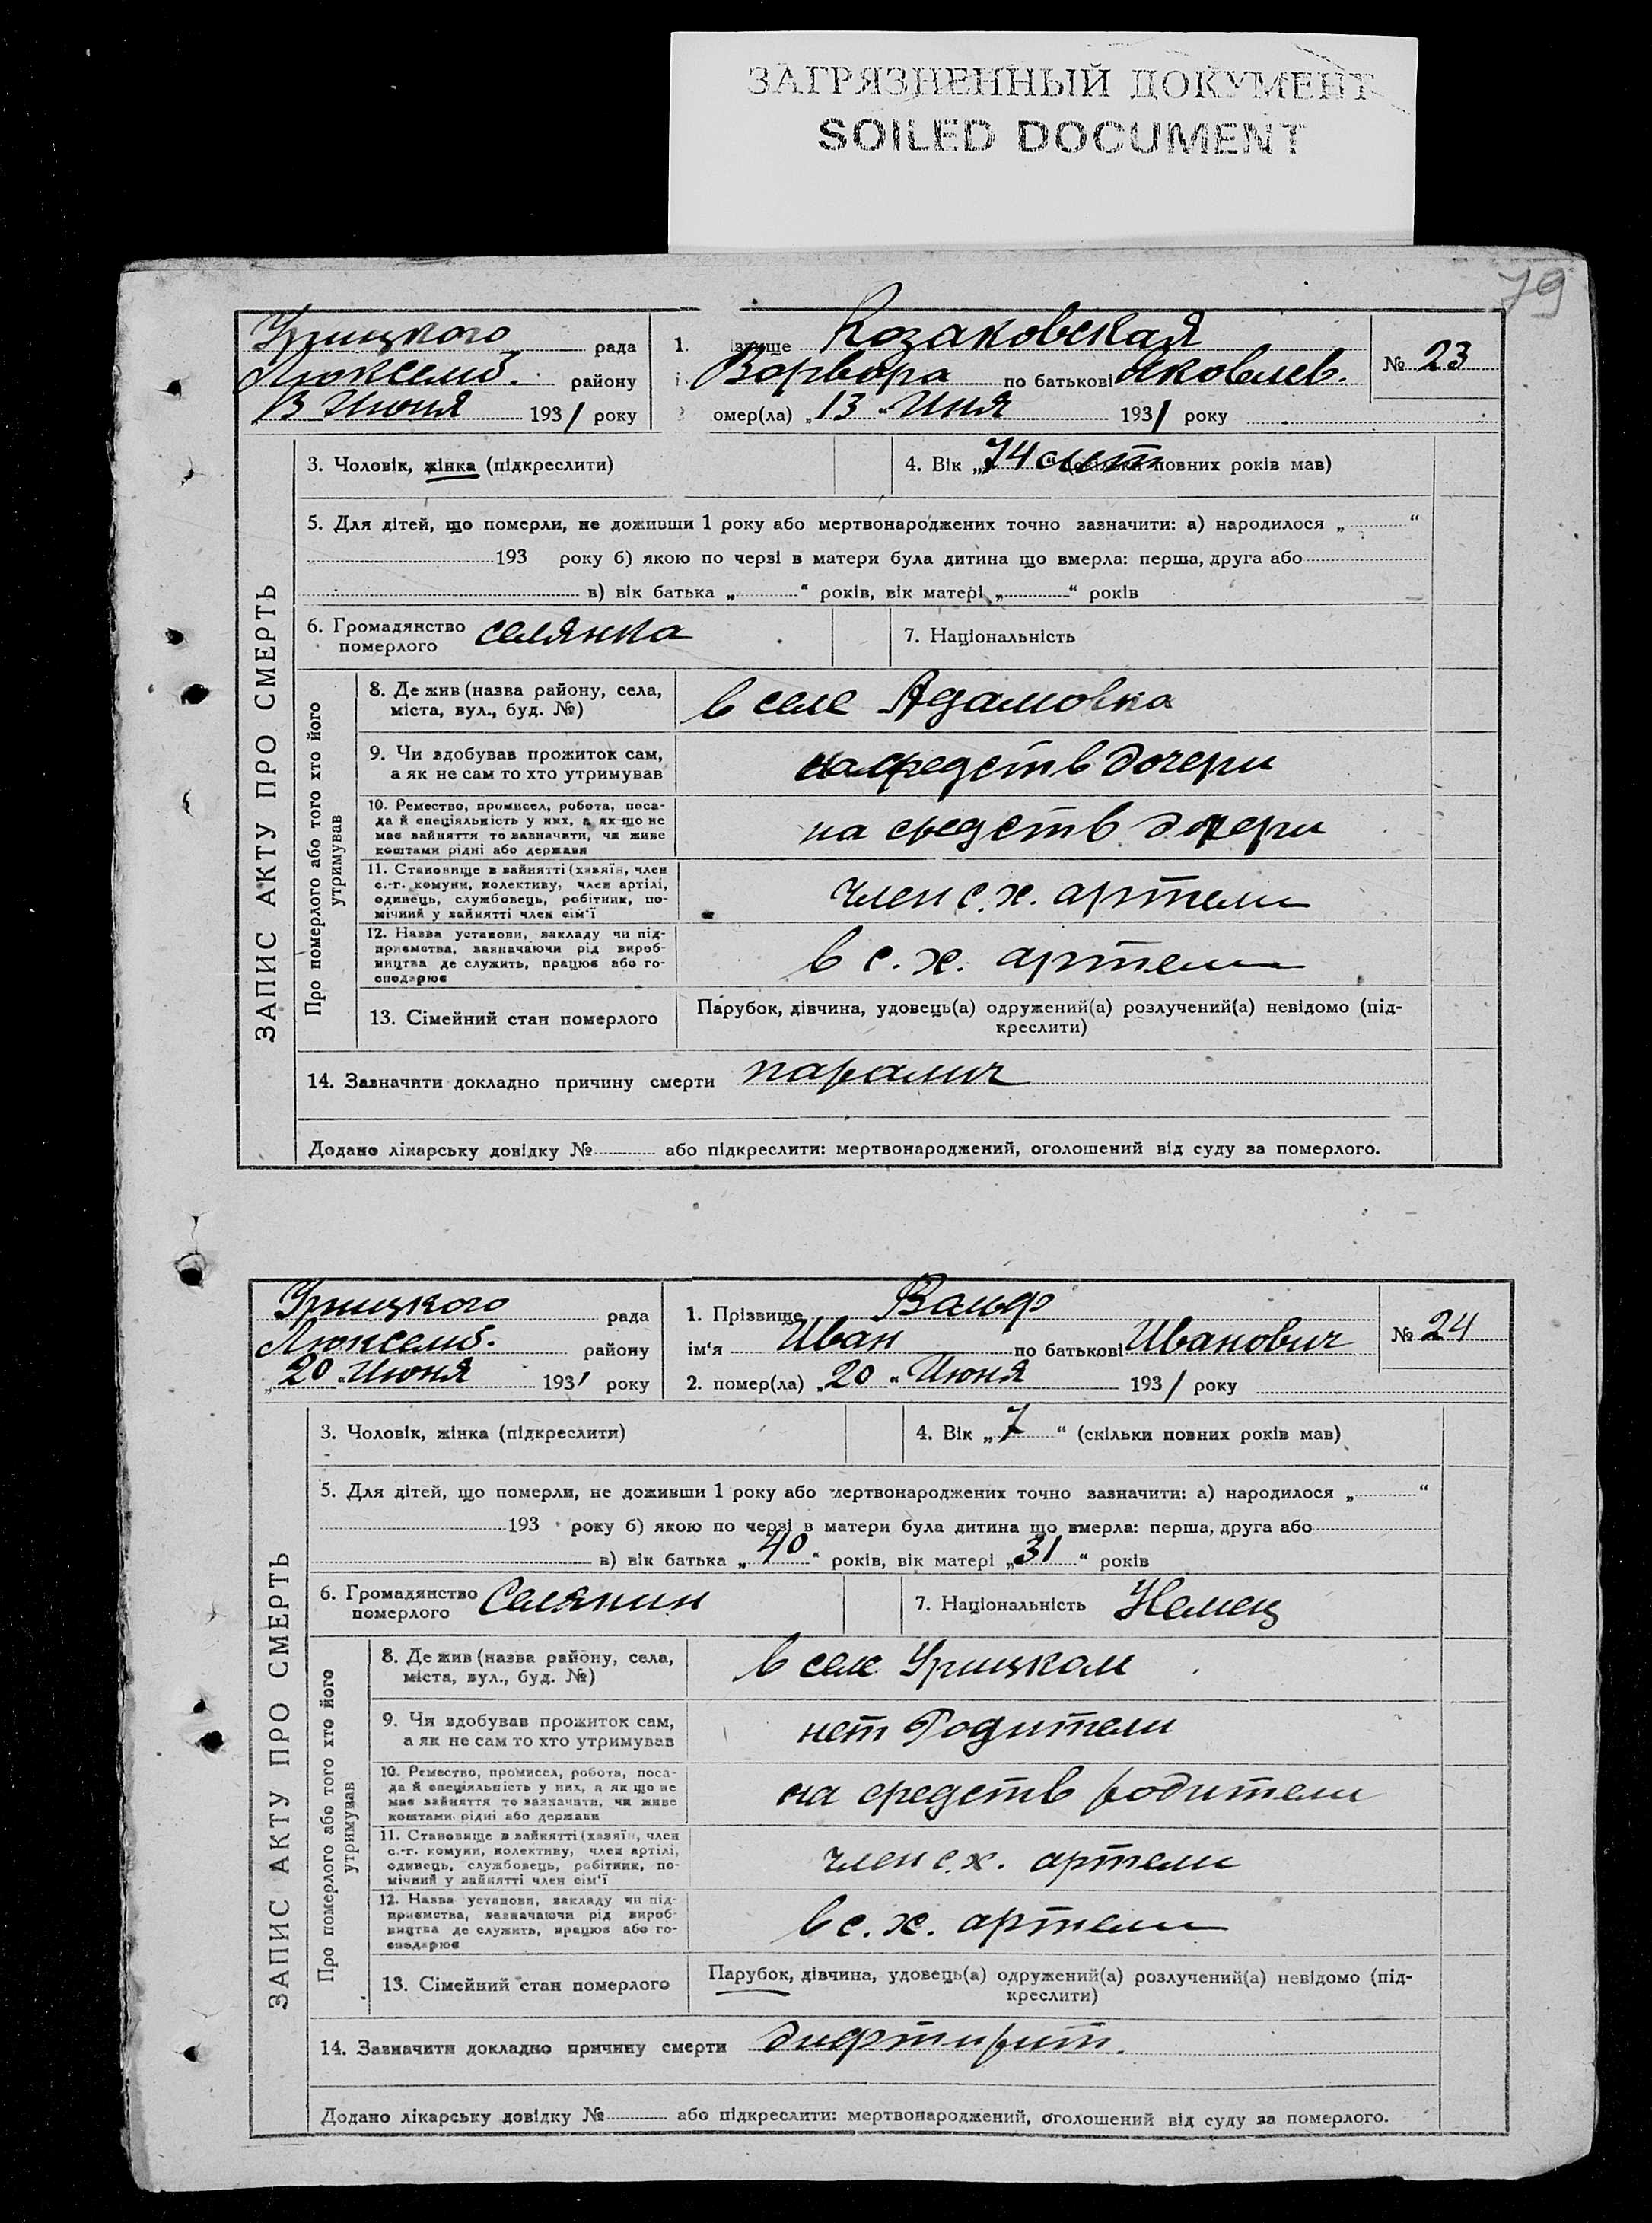 ЗАГРЯЗНЕННЫЙ ДОКУМЕНТ
SOILED DOCUMENT
79
Урицкого рада
Люксемб. району
„13 Июня 1931 року
1. ізвище Козаковская
і Ворвора по батькові Яковлев.
омер(ла) „13 “ Иня 1931 року
№ 23
ЗАПИС АКТУ ПРО СМЕРТЬ
3. Чоловік, жінка (підкреслити)
4. Вік „74 лет повних років мав)
5. Для дітей, що померли, не доживши 1 року або мертвонароджених точно зазначити: а) народилося „ “
193 року б) якою по черзі в матери була дитина що вмерла: перша, друга або
в) вік батька „ “ років, вік матері „ “ років
6. Громадянство померлого селянка
7. Національність
Про померлого або того хто його утримував
8. Де жив (назва району, села,
міста, вул., буд. №)
в селе Адамовка
9. Чи здобував прожиток сам,
а як не сам то хто утримував
на средств дочери
10. Ремество, промисел, робота, поса-
да й спеціяльність у них, а як що не
має зайняття то зазначити, чи живе
коштами рідні або держави
на средств дочери
11. Становище в зайнятті (хазяїн, член
с.-г. комуни, колективу, член артілі,
одинець, службовець, робітник, по-
мічний у зайнятті член сім'ї
член с. х. артели
12. Назва установи, закладу чи під-
приємства, зазначаючи рід вироб-
ництва де служить, працює або го-
сподарює
в с. х. артели
13. Сімейний стан померлого
Парубок, дівчина, удовець(а) одружений(а) розлучений(а) невідомо (під-
креслити)
14. Зазначити докладно причину смерти паралич
Додано лікарську довідку № або підкреслити: мертвонароджений, оголошений від суду за померлого.
Урицкого рада
Люксемб. району
„20 “ Июня 1931 року
1. Прізвище Вальф
ім'я Иван по батькові Иванович
2. помер(ла) „20 “ Июня 1931 року
№ 24
ЗАПИС АКТУ ПРО СМЕРТЬ
3. Чоловік, жінка (підкреслити)
4. Вік „7 “ (скільки повних років мав)
5. Для дітей, що померли, не доживши 1 року або мертвонароджених точно зазначити: а) народилося „ “
193 року б) якою по черзі в матери була дитина що вмерла: перша, друга або
в) вік батька „40 “ років, вік матері „31 “ років
6. Громадянство померлого Селянин
7. Національність Немец
Про померлого або того хто його утримував
8. Де жив (назва району, села,
міста, вул., буд. №)
в селе Урицком
9. Чи здобував прожиток сам,
а як не сам то хто утримував
нет Родители
10. Ремество, промисел, робота, поса-
да й спеціяльність у них, а як що не
має зайняття то зазначити, чи живе
коштами рідні або держави
на средств родители
11. Становище в зайнятті (хазяїн, член
с.-г. комуни, колективу, член артілі,
одинець, службовець, робітник, по-
мічний у зайнятті член сім'ї
член с. х. артели
12. Назва установи, закладу чи під-
приємства, зазначаючи рід вироб-
ництва де служить, працює або го-
сподарює
в с. х. артели
13. Сімейний стан померлого
Парубок, дівчина, удовець(а) одружений(а) розлучений(а) невідомо (під-
креслити)
14. Зазначити докладно причину смерти дифтирит.
Додано лікарську довідку № або підкреслити: мертвонароджений, оголошений від суду за померлого.